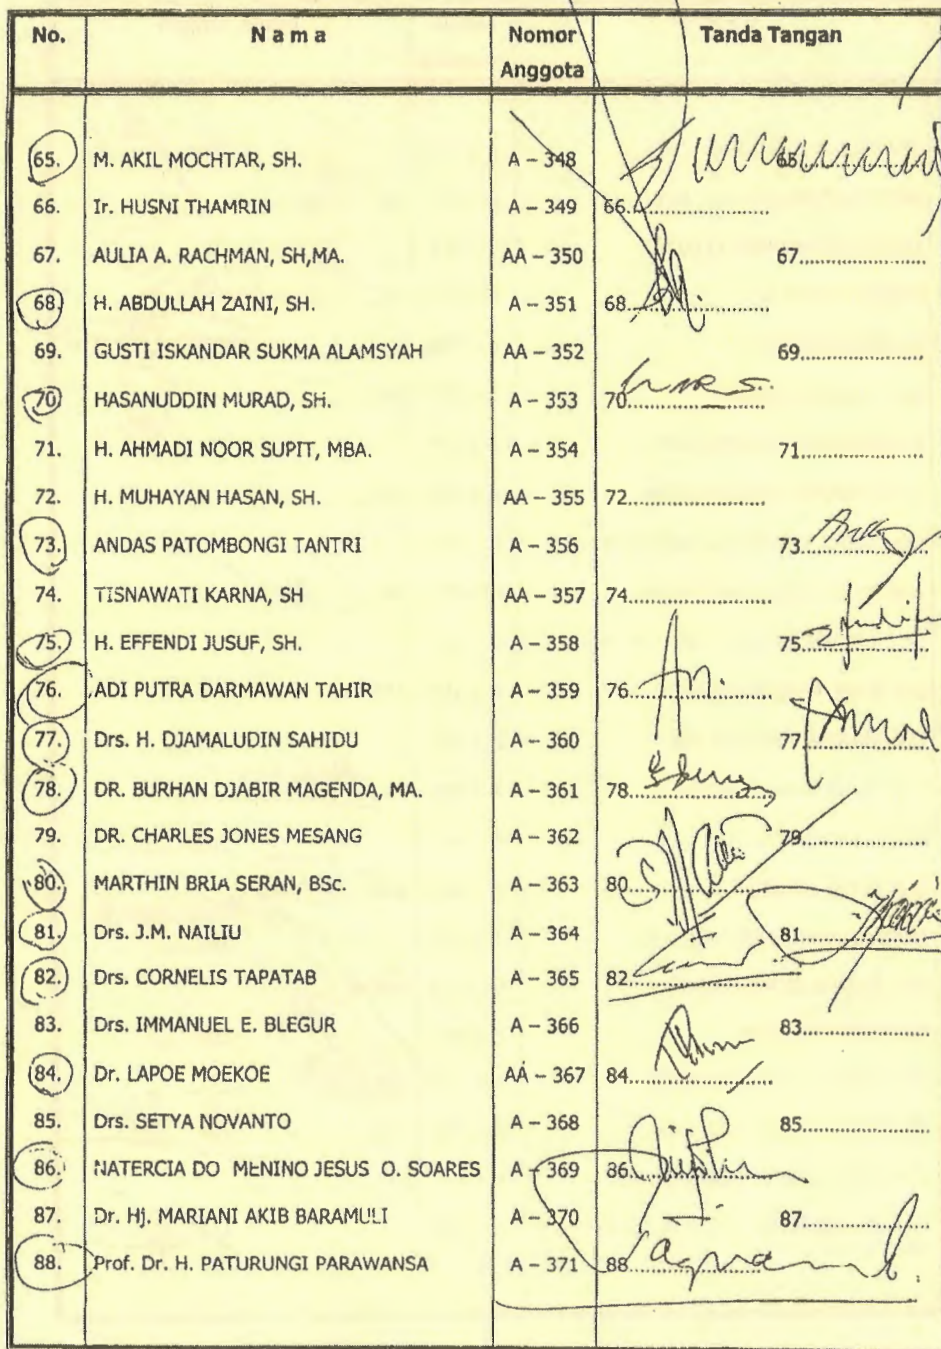 No. N a m a Nomor Anggota Tanda Tangan
65. M. AKIL MOCHTAR, SH. A – 348 65..................
66. Ir. HUSNI THAMRIN A – 349 66......................
67. AULIA A. RACHMAN, SH,MA. AA – 350 67......................
68. H. ABDULLAH ZAINI, SH. A – 351 68......................
69. GUSTI ISKANDAR SUKMA ALAMSYAH AA – 352 69......................
70. HASANUDDIN MURAD, SH. A – 353 70......................
71. H. AHMADI NOOR SUPIT, MBA. A – 354 71......................
72. H. MUHAYAN HASAN, SH. AA – 355 72......................
73. ANDAS PATOMBONGI TANTRI A – 356 73......................
74. TISNAWATI KARNA, SH AA – 357 74......................
75. H. EFFENDI JUSUF, SH. A – 358 75......................
76. ADI PUTRA DARMAWAN TAHIR A – 359 76......................
77. Drs. H. DJAMALUDIN SAHIDU A – 360 77......................
78. DR. BURHAN DJABIR MAGENDA, MA. A – 361 78......................
79. DR. CHARLES JONES MESANG A – 362 79......................
80. MARTHIN BRIA SERAN, BSc. A – 363 80......................
81. Drs. J.M. NAILIU A – 364 81......................
82. Drs. CORNELIS TAPATAB A – 365 82......................
83. Drs. IMMANUEL E. BLEGUR A – 366 83......................
84. Dr. LAPOE MOEKOE AA – 367 84......................
85. Drs. SETYA NOVANTO A – 368 85......................
86. NATERCIA DO MENINO JESUS O. SOARES A – 369 86......................
87. Dr. Hj. MARIANI AKIB BARAMULI A – 370 87......................
88. Prof. Dr. H. PATURUNGI PARAWANSA A – 371 88......................